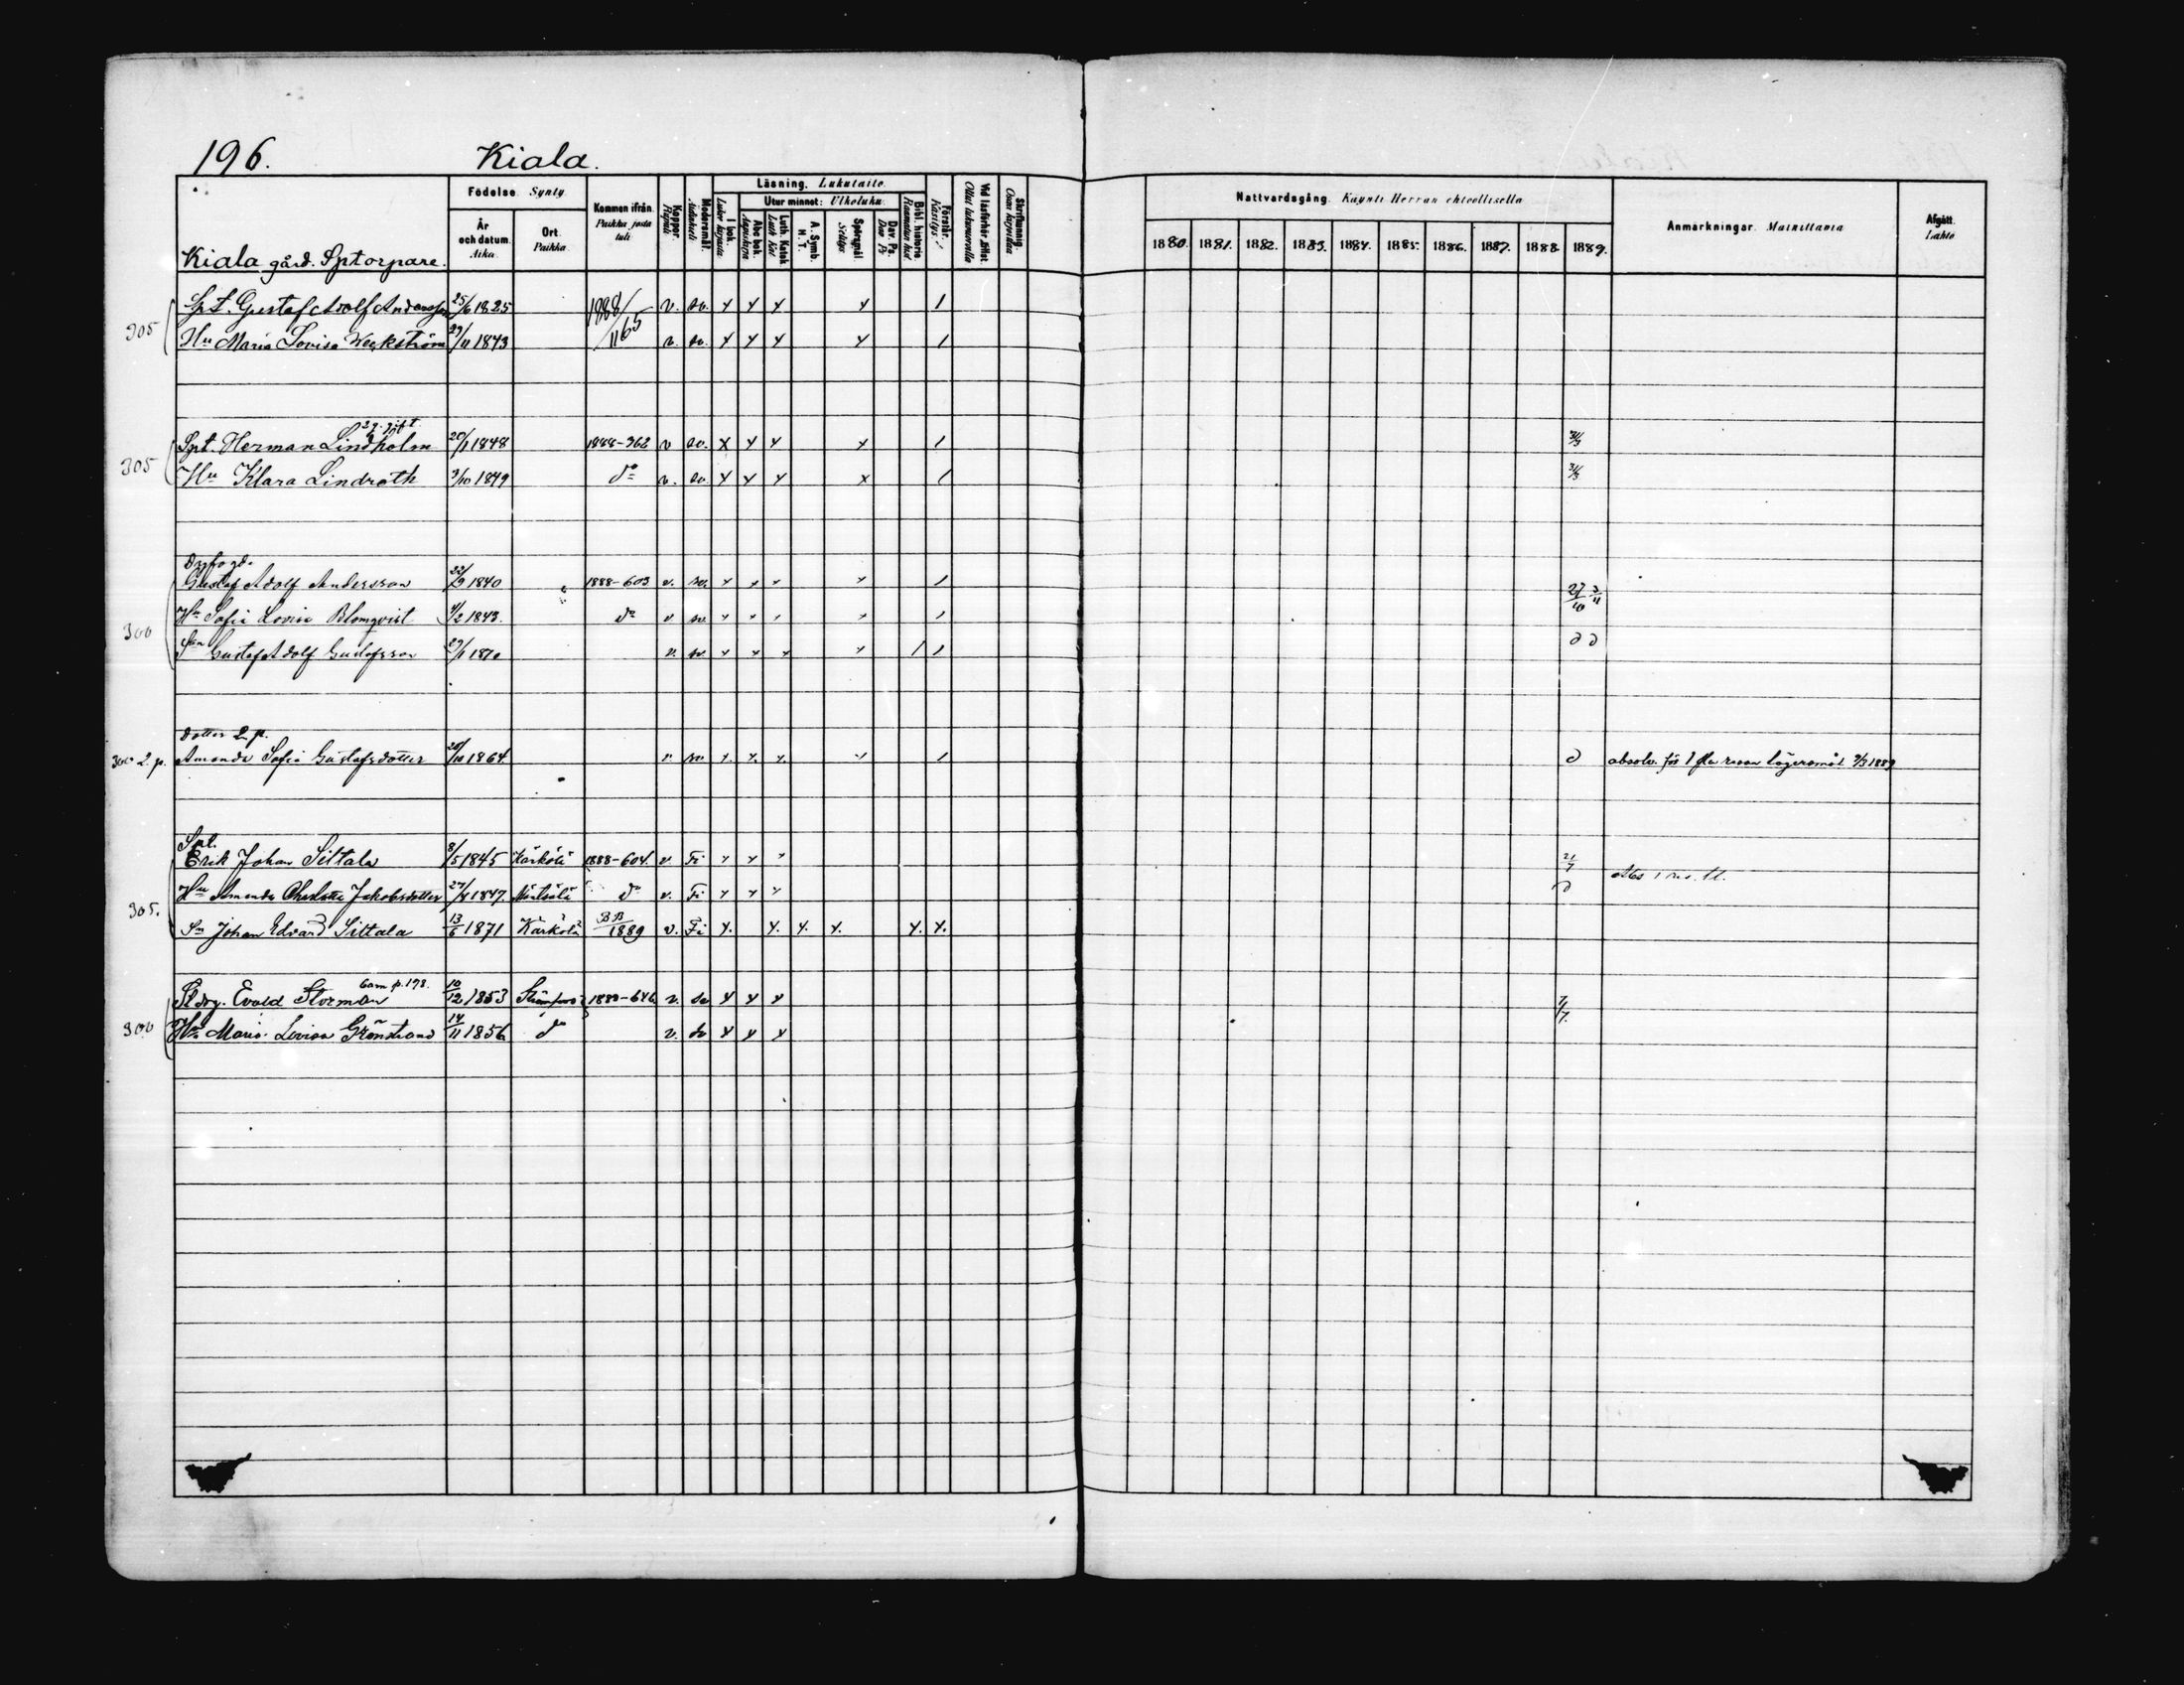 196. Kiala.
Födelse. Synty.
Kommen ifrån. Paikka josta tuli
Koppor. Rupuli
Modersmål. Äidinkieli
Läsning. Lukutaito.
I bok. Lukee kirjasta
Utur minnet: Ulkoluku.
Abc bok. Aapiskirja
Luth. Katek. Luth. Kat
A. Symb. H. T.
Spörsmål
Dav. Ps. Dav Ps
Bibl. historia
Förstår. Käsitys
Vid läsförhör
Skriftkunnig. Osaa kirjoittaa
Nattvardsgång. Käynti Herran ehtoollisella
Anmärkningar. Muistutuksia
Afgått. Lähtö
År och datum. Aika.
Ort. Paikka.
1880. 1881. 1882. 1883. 1884. 1885. 1886. 1887. 1888 1889.
Kiala gård. Sptorpare.
305 Spt. Gustaf Adolf Andersson 25/6 1825 1888/1165 v. sv. x x x x 1
Hu Maria Lovisa Weckström 29/11 1843 v. sv. x x x x 1
2 g. gift
305 Spt. Herman Lindholm 20/1 1848 1888-362 v sv. x x x x 1 31/3
Hu Klara Lindroth 3/10 1849 do v. sv x x x x 1 31/3
Gustaf Adolf Andersson 22/9 1840 1888-603 v. sv. x x x x 1 27/10 3/11
300 Hu Sofia Lovisa Blomqvist 4/2 1843. do v sv x x x x 1
Son Gustaf Adolf Gustafsson 29/1 1870 v. sv x x x x 1 1 d d
dotter 2. p.
300 2. p. Amanda Sofia Gustafsdotter 20/10 1864 v. sv x. x. x. x 1 d absolv. för 1 sta resan lägersmål 3/3 1889
Spt.
Erik Johan Sittala 8/5 1845 Kärkölä 1888-604. v Fi x x x 21/7
Hu Amanda Charlotta Jakobsdotter 27/4 1847. Mäntsälä do v. Fi x x x d
305. Sn Johan Edvard Sittala 13/6 1871 Kärkölä BB/1889 v. Fi x. x. x. x. x. x.
barn p. 198.
Evald Storman 10/12 1853 Strömfors 1888-646 v. sv x x x 7/7.
300 Hu Maria Lovisa Grönstrand 14/11 1856 do v. sv x x x